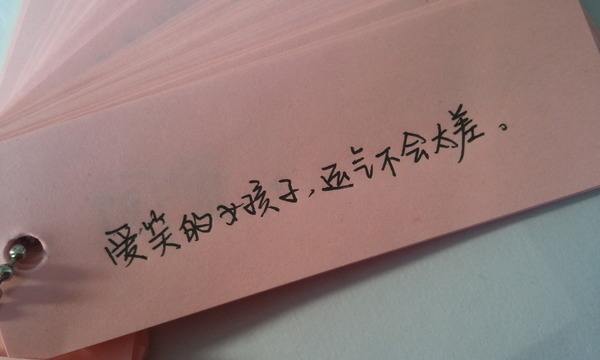 爱笑的女孩子,运气不会太差。